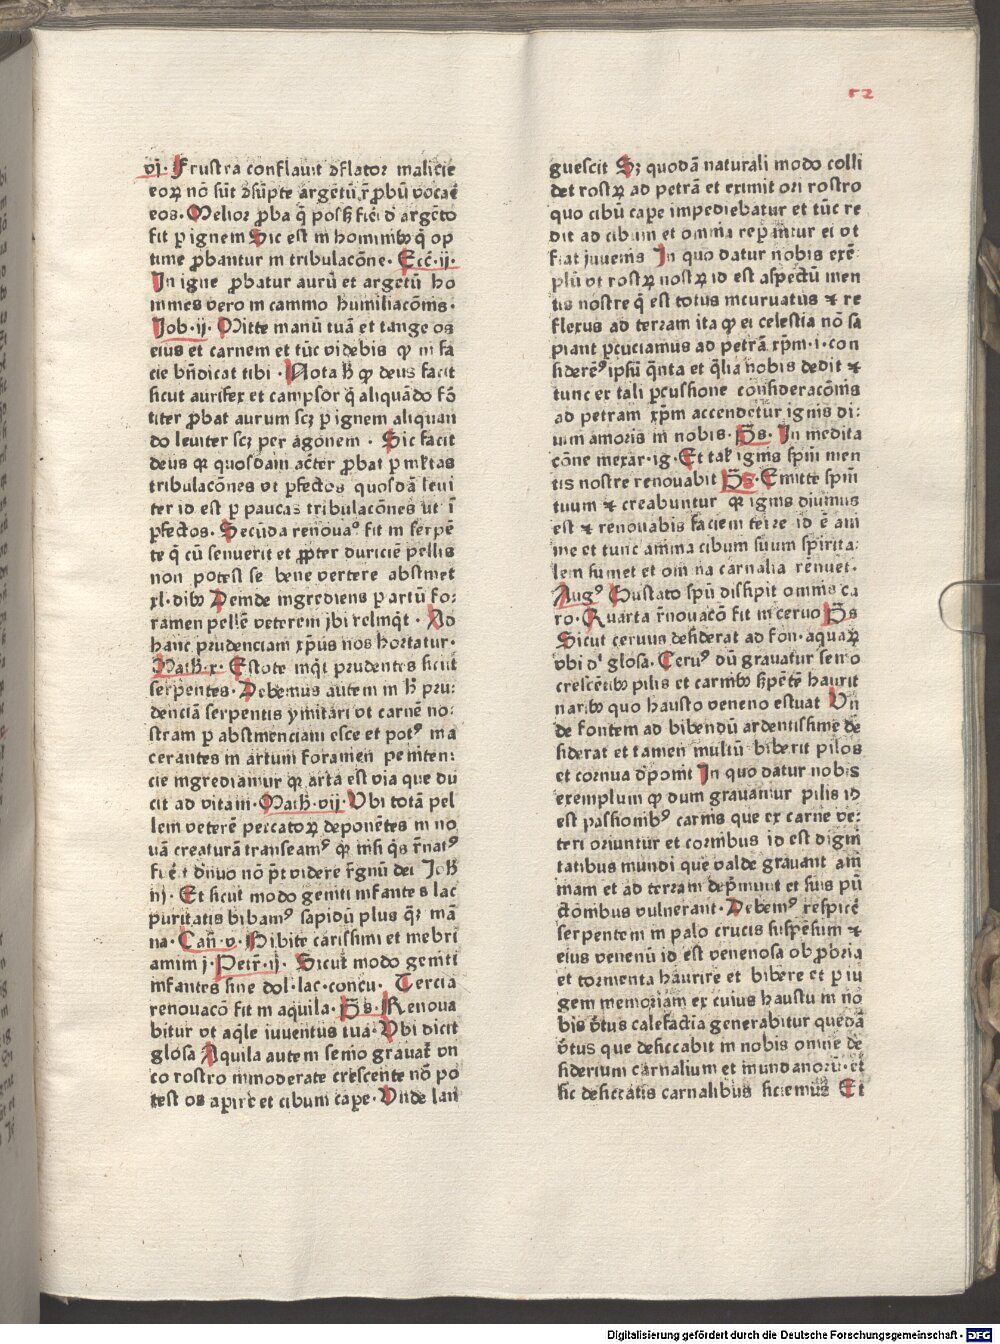 52
vj. Frustra conflauit ɔflator malicie
eoꝝ nō sūt ɔsūpte argētū r̄ ꝓbū vocaē
eos. Melior ꝓba q̄ posſꝫ fiēi d' argēto
fit p ignem Sic est in hominibꝫ q̄ op
time ꝓbantur in tribulacōne. Eccē. ij.
In igne ꝓbatur aurū et argētū ho
mines vero in camino humiliacōnis.
Job. ij. Mitte manū tuā et tange os
eius et carnem et tūc videbis ꝙ in fa
cie bn̄dicat tibi. Nota hꝫ ꝙ deus facit
sicut aurifex et campsor q̄ aliquādo fō
titer ꝓbat aurum scꝫ p ignem aliquan
do leuiter scꝫ per agonem. Sic facit
deus qꝛ quosdam ac̄ter ꝓbat p ml̄tas
tribulacōnes vt ꝑfectos quosdā leui
ter id est p paucas tribulacōnes ut ī
ꝑfectos. Secūda renouaꝰ fit in serpē
te q̄ cū senuerit et ꝓpter duriciē pellis
non potest se bene vertere abstinet
xl. dibꝫ Deinde ingrediens p artū fo:
ramen pellē veterem ibi relinqt. Ad
hanc prudenciam xp̄us nos hortatur.
Math. x. Estote inqt prudentes sicut
serpentes. Debemus autem in hꝫ pru:
denciā serpentis ymitari vt carnē no:
stram p abstinenciam esce et potꝰ ma
cerantes in artum foramen peniten:
cie ingrediamur qꝛ arta est via que du
cit ad vitam. Math. vij. Vbi totā pel
lem veterē peccatoꝝ deponētes in no
uā creaturā transeamꝰ qꝛ nisi q̄s r̄natꝰ
fuēt dn̄uo nō p̄t videre r̄gnū dei Joh
iij. Et sicut modo geniti infantes lac
puritatis bibamꝰ sapidū plus qꝫ mā
na. Can̄. v. Bibite carissimi et inebri
amini j. Petr̄. ij. Sicut modo geniti
infantes sine dol. lac. concu. Tercia
renouacō fit in aquila. P̄s. Renoua
bitur vt aqle iuuentus tua. Vbi dicit
glosa Aquila autem senio grauat̄ vn
co rostro inmoderate crescente nō po
test os apire et cibum cape. Vnde lan
guescit Sꝫ quodā naturali modo colli
det rostꝝ ad petrā et eximit ori rostro
quo cibū cape impediebatur et tūc re
dit ad cibum et omnia repantur ei vt
fiat iuuenis In quo datur nobis exē
plū vt rostꝝ nostꝝ id est aspectū men
tis nostre q̄ est totus incuruatus ⁊ re
flexus ad terram ita ꝙ ei celestia nō sa
piant ꝑcuciamus ad petrā xp̄m. i. con
siderēꝰ ipsū q̄nta et q̄lia nobis dedit ⁊
tunc ex tali ꝑcussione consideracōnis
ad petram xp̄m accendetur ignis di:
uini amoris in nobis. P̄s. In medita
cōne mexar. ig. Et tal' ignis spm̄ men
tis nostre renouabit P̄s. Emitte spm̄
tuum ⁊ creabuntur qꝛ ignis diuinus
est ⁊ renouabis faciem terre id ē ani
me et tunc anima cibum suum spirita:
lem sumet et omnia carnalia rēnuet.
Augꝰ Gustato spū dissipit omnis ca
ro. Quarta r̄nouacō fit in ceruo P̄s
Sicut ceruus desiderat ad fon. aquaꝝ
vbi dꝛ glosa. Ceruꝰ dū grauatur senio
crescētibꝫ pilis et carnibꝫ sꝑētē haurit
naribꝫ quo hausto veneno estuat Vn
de fontem ad bibendū ardentissime de
siderat et tamen multū biberit pilos
et cornua dꝑonit In quo datur nobis
exemplum ꝙ dum grauamur pilis id
est passionibꝰ carnis que ex carne ve:
teri oriuntur et cornibus id est digni
tatibus mundi que valde grauant ani
mam et ad terram dep̄munt et suis pū
ctionibus vulnerant. Debemꝰ respicē
serpentem in palo crucis suspēsum ⁊
eius venenū id est venenosa obꝓbria
et tormenta haurire et bibere et p iu
gem memoriam ex cuius haustu in no
bis v̄tus calefactia generabitur quedā
v̄tus que desiccabit in nobis omne de
siderium carnalium et mundanorū. et
sic desiccatis carnalibus siciemus Et
Digitalisierung gefördert durch die Deutsche Forschungsgemeinschaft - DFG